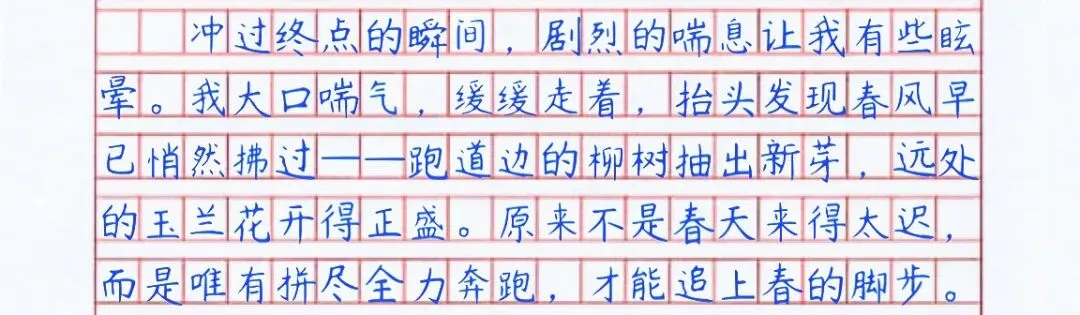 冲过终点的瞬间，剧烈的喘息让我有些眩
晕。我大口喘气，缓缓走着，抬头发现春风早
已悄然拂过——跑道边的柳树抽出新芽，远处
的玉兰花开得正盛。原来不是春天来得太迟，
而是唯有拼尽全力奔跑，才能追上春的脚步。